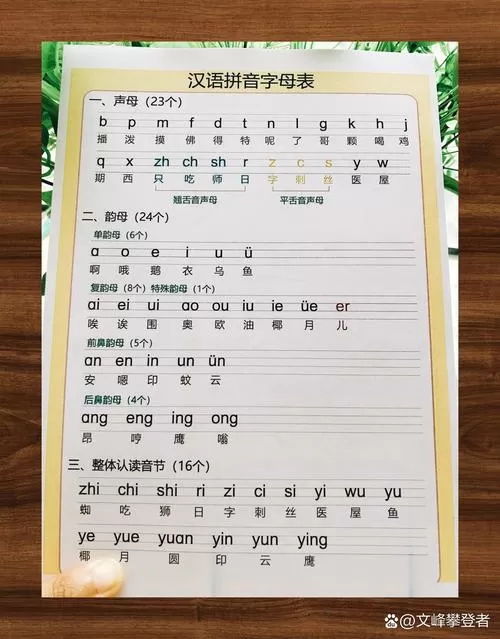 汉语拼音字母表
一、声母（23个）
b p m f d t n l g k h j
播 泼 摸 佛 得 特 呢 了 哥 颗 喝 鸡
q x zh ch sh r z c s y w
期 西 只 吃 师 日 字 刺 丝 医 屋
翘舌音声母 平舌音声母
二、韵母（24个）
单韵母（6个）
a o e i u ü
啊 哦 鹅 衣 乌 鱼
复韵母（8个）特殊韵母（1个）
ai ei ui ao ou iu ie üe er
唉 诶 围 奥 欧 油 椰 月 儿
前鼻韵母（5个）
an en in un ün
安 嗯 印 蚊 云
后鼻韵母（4个）
ang eng ing ong
昂 哼 鹰 嗡
三、整体认读音节（16个）
zhi chi shi ri zi ci si yi wu yu
蜘 吃 狮 日 字 刺 丝 医 屋 鱼
ye yue yuan yin yun ying
椰 月 圆 印 云 鹰
@文峰攀登者